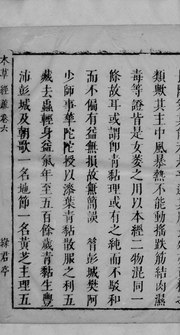 類數其主中風暴熱不能動搖跌筋結肉諸
毒等證皆是女萎之用以本經二物混同一
條故耳或謂即青黏理或有之純而不駁和
而不偏有益無損故無簡誤　昔彭城樊阿
少師事華佗佗授以漆葉青黏散服之利五
藏去蟲輕身益氣年至五百餘歲青黏生豐
沛彭城及朝歌一名地節一名黃芝主理五
本草經疏卷六
綠君亭